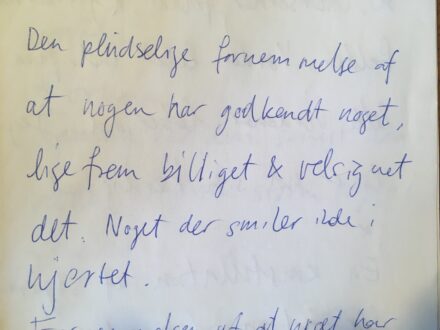 Den pludselige fornemmelse af
at nogen har godkendt noget,
lige frem billiget & velsignet
det. Noget der smiler inde i
hjertet.
Fornemmelsen af at noget har